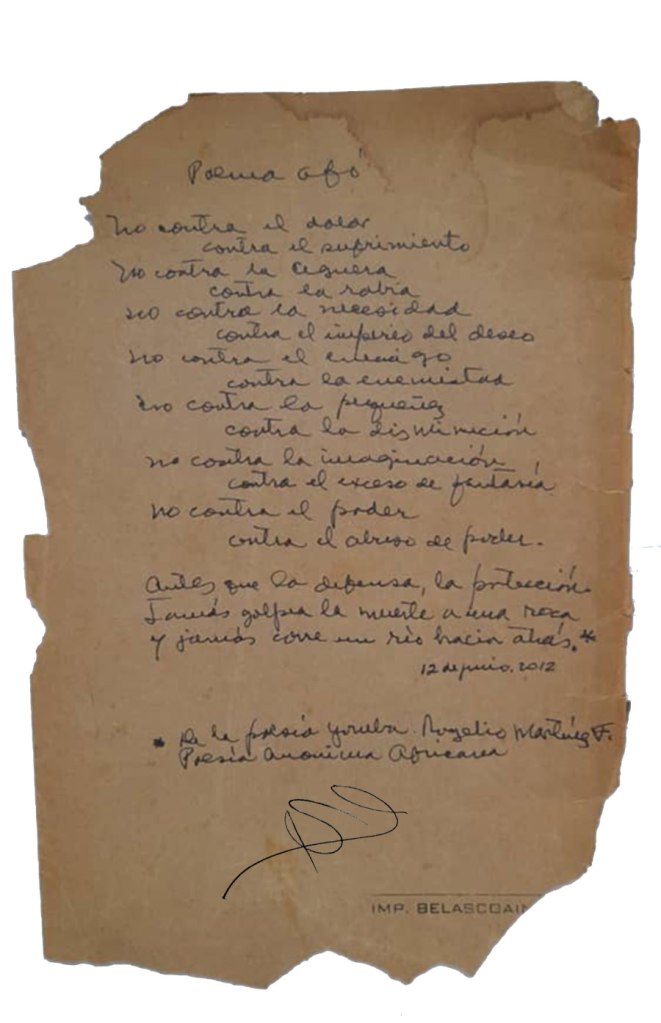 Poema afó
No contra el dolor
contra el sufrimiento
No contra la ceguera
contra la rabia
no contra la necesidad
contra el imperio del deseo
no contra el enemigo
contra la enemistad
No contra la pequeñez
contra la disminución
no contra la imaginación
contra el exceso de fantasía
no contra el poder
contra el abuso de poder.
Antes que la defensa, la protección.
Jamás golpea la muerte a una roca
y jamás corre un río hacia atrás.*
12 de junio. 2012
* De la poesía yoruba. Rogelio Martínez F.
Poesía Anónima Africana
IMP. BELASCOAIN